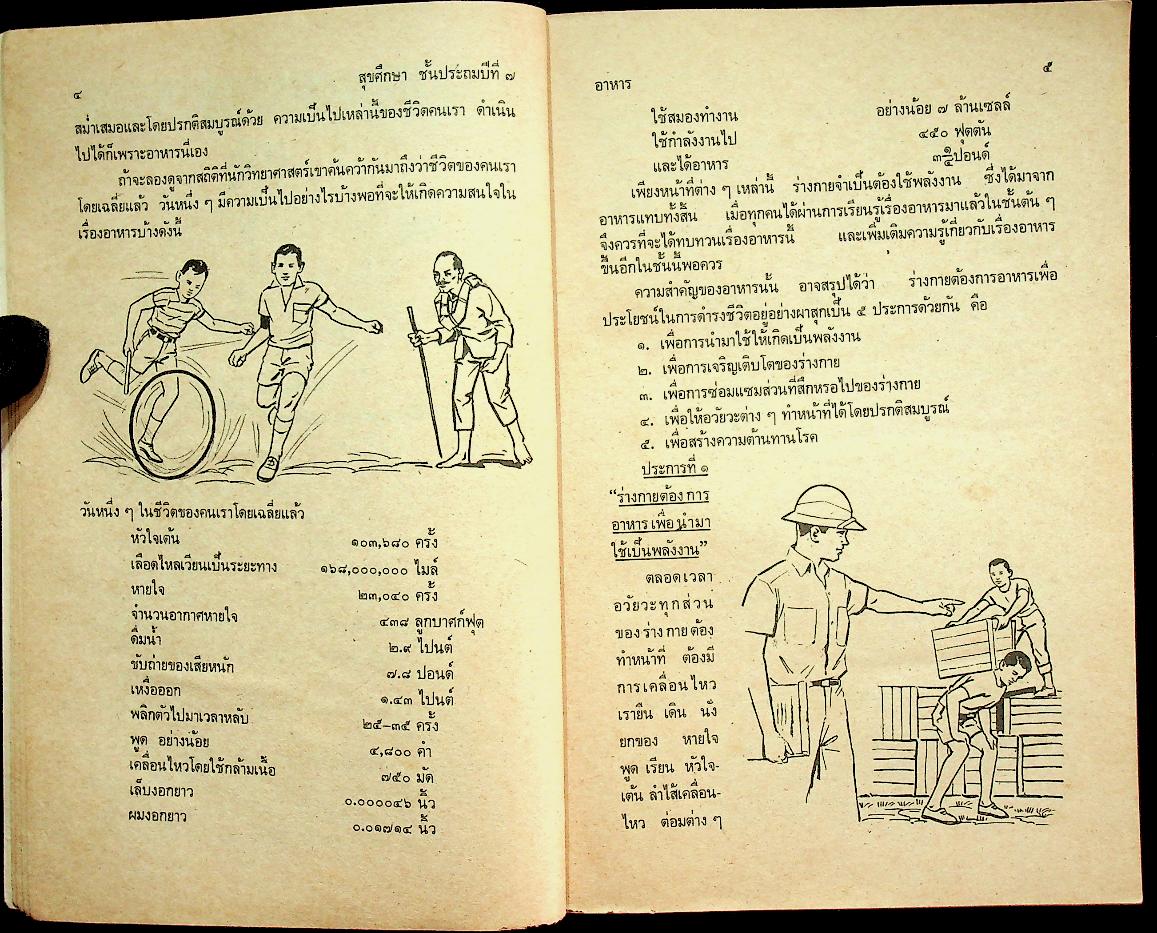 ๔
สุขศึกษา ชั้นประถมปีที่ ๗
สม่ำเสมอและโดยปรกติสมบูรณ์ด้วย ความเป็นไปเหล่านี้ของชีวิตคนเรา ดำเนิน
ไปได้ก็เพราะอาหารนี่เอง
ถ้าจะลองดูจากสถิติที่นักวิทยาศาสตร์เขาค้นคว้ากันมาถึงว่าชีวิตของคนเรา
โดยเฉลี่ยแล้ว วันหนึ่ง ๆ มีความเป็นไปอย่างไรบ้างพอที่จะให้เกิดความสนใจใน
เรื่องอาหารบ้างดังนี้
วันหนึ่ง ๆ ในชีวิตของคนเราโดยเฉลี่ยแล้ว
หัวใจเต้น ๑๐๓,๖๘๐ ครั้ง
เลือดไหลเวียนเป็นระยะทาง ๑๖๘,๐๐๐,๐๐๐ ไมล์
หายใจ ๒๓,๐๔๐ ครั้ง
จำนวนอากาศหายใจ ๔๓๘ ลูกบาศก์ฟุต
ดื่มน้ำ ๒.๙ ไปนต์
ขับถ่ายของเสียหนัก ๗.๘ ปอนด์
เหงื่อออก ๑.๔๓ ไปนต์
พลิกตัวไปมาเวลาหลับ ๒๕–๓๕ ครั้ง
พูด อย่างน้อย ๔,๘๐๐ คำ
เคลื่อนไหวโดยใช้กล้ามเนื้อ ๗๕๐ มัด
เล็บงอกยาว ๐.๐๐๐๐๔๖ นิ้ว
ผมงอกยาว ๐.๐๑๗๑๔ นิ้ว
อาหาร
๕
ใช้สมองทำงาน อย่างน้อย ๗ ล้านเซลล์
ใช้กำลังงานไป ๔๕๐ ฟุตตัน
และได้อาหาร ๓ ๑/๔ ปอนด์
เพียงหน้าที่ต่าง ๆ เหล่านี้ ร่างกายจำเป็นต้องใช้พลังงาน ซึ่งได้มาจาก
อาหารแทบทั้งสิ้น เมื่อทุกคนได้ผ่านการเรียนรู้เรื่องอาหารมาแล้วในชั้นต้น ๆ
จึงควรที่จะได้ทบทวนเรื่องอาหารนี้ และเพิ่มเติมความรู้เกี่ยวกับเรื่องอาหาร
ขึ้นอีกในชั้นนี้พอควร
ความสำคัญของอาหารนั้น อาจสรุปได้ว่า ร่างกายต้องการอาหารเพื่อ
ประโยชน์ในการดำรงชีวิตอยู่อย่างผาสุกเป็น ๕ ประการด้วยกัน คือ
๑. เพื่อการนำมาใช้ให้เกิดเป็นพลังงาน
๒. เพื่อการเจริญเติบโตของร่างกาย
๓. เพื่อการซ่อมแซมส่วนที่สึกหรอไปของร่างกาย
๔. เพื่อให้อวัยวะต่าง ๆ ทำหน้าที่ได้โดยปรกติสมบูรณ์
๕. เพื่อสร้างความต้านทานโรค
ประการที่ ๑
“ร่างกายต้องการ
อาหารเพื่อนำมา
ใช้เป็นพลังงาน”
ตลอดเวลา
อวัยวะทุกส่วน
ของร่างกายต้อง
ทำหน้าที่ ต้องมี
การเคลื่อนไหว
เรายืน เดิน นั่ง
ยกของ หายใจ
พูด เรียน หัวใจ-
เต้น ลำไส้เคลื่อน-
ไหว ต่อมต่าง ๆ